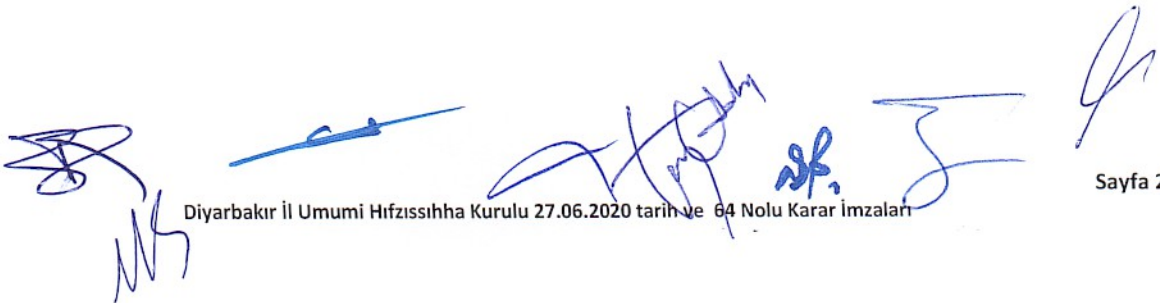 Sayfa 2
Diyarbakır İl Umumi Hıfzıssıhha Kurulu 27.06.2020 tarih ve 64 Nolu Karar İmzaları